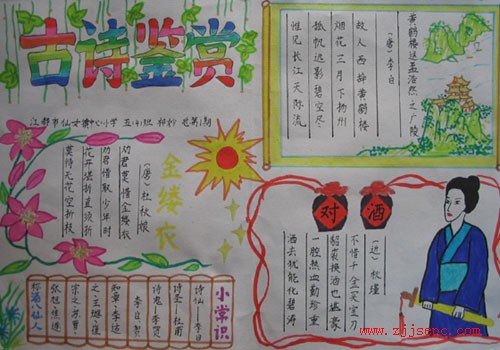 古诗鉴赏
江都市仙女镇中心小学 五(4)班
黄鹤楼送孟浩然之广陵
(唐)李白
故人西辞黄鹤楼
烟花三月下扬州
孤帆远影碧空尽
惟见长江天际流
金缕衣
(唐)杜秋娘
劝君莫惜金缕衣
劝君惜取少年时
花开堪折直须折
莫待无花空折枝
对酒
(近)秋瑾
不惜千金买宝刀
貂裘换酒也堪豪
一腔热血勤珍重
洒去犹能化碧涛
小常识
诗仙—李白
诗圣—杜甫
诗鬼—李贺
李白、贺
知章、李适
宗之、苏晋、
张旭、焦遂
称酒八仙人
www.zjjsepc.com